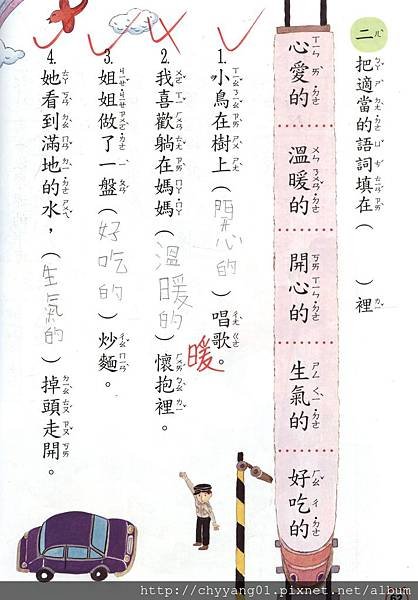 二、把適當的語詞填在（ ）裡
心愛的
溫暖的
開心的
生氣的
好吃的
1.小鳥在樹上（開心的）唱歌。
2.我喜歡躺在媽媽（溫暖的）懷抱裡。
暖
3.姐姐做了一盤（好吃的）炒麵。
4.她看到滿地的水，（生氣的）掉頭走開。
http://chyyang01.pixnet.net/album